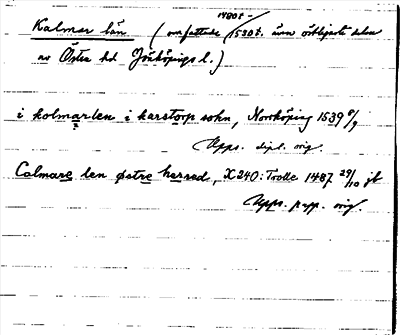 1480t-
Kalmar län (omfattade /1530t. även östligaste delen
av Östra hd Jönköpings l.)
i kolmarlen i karstorp sokn, Norrköping 1539 9/9
Upps. dipl. orig.
Calmare len østre herred, X240: Trolle 1487 29/10 jt
Upps. papp. orig.